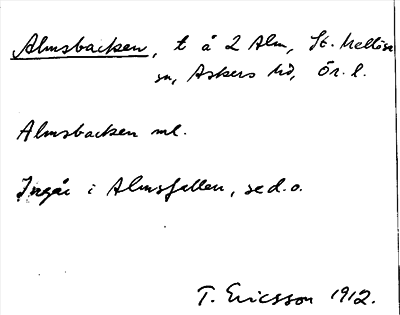 Almsbacken, t å 2 Alm, St. Mellösa
sn, Askers hd, Ör. l.
Almsbacken ml.
Ingår i Almsfallen, se d.o.
T. Ericsson 1912.